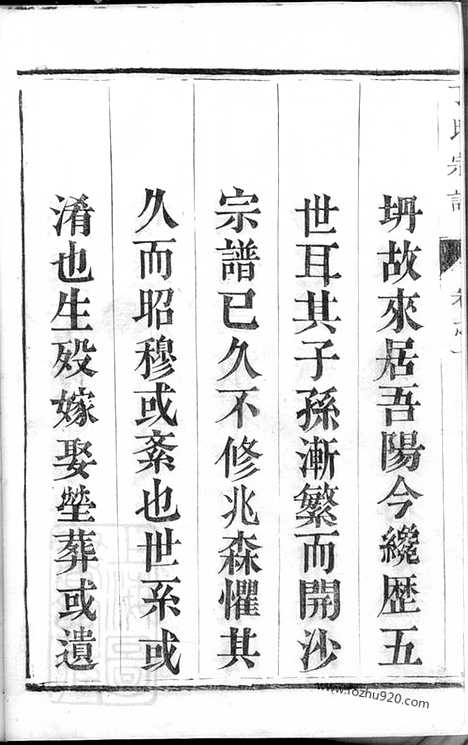 坍故來居吾陽今纔歷五
世耳其子孫漸繁而開沙
宗譜已久不修兆森懼其
久而昭穆或紊也世系或
淆也生殁嫁娶塋葬或遺
氏宗譜
www.rozhu920.com